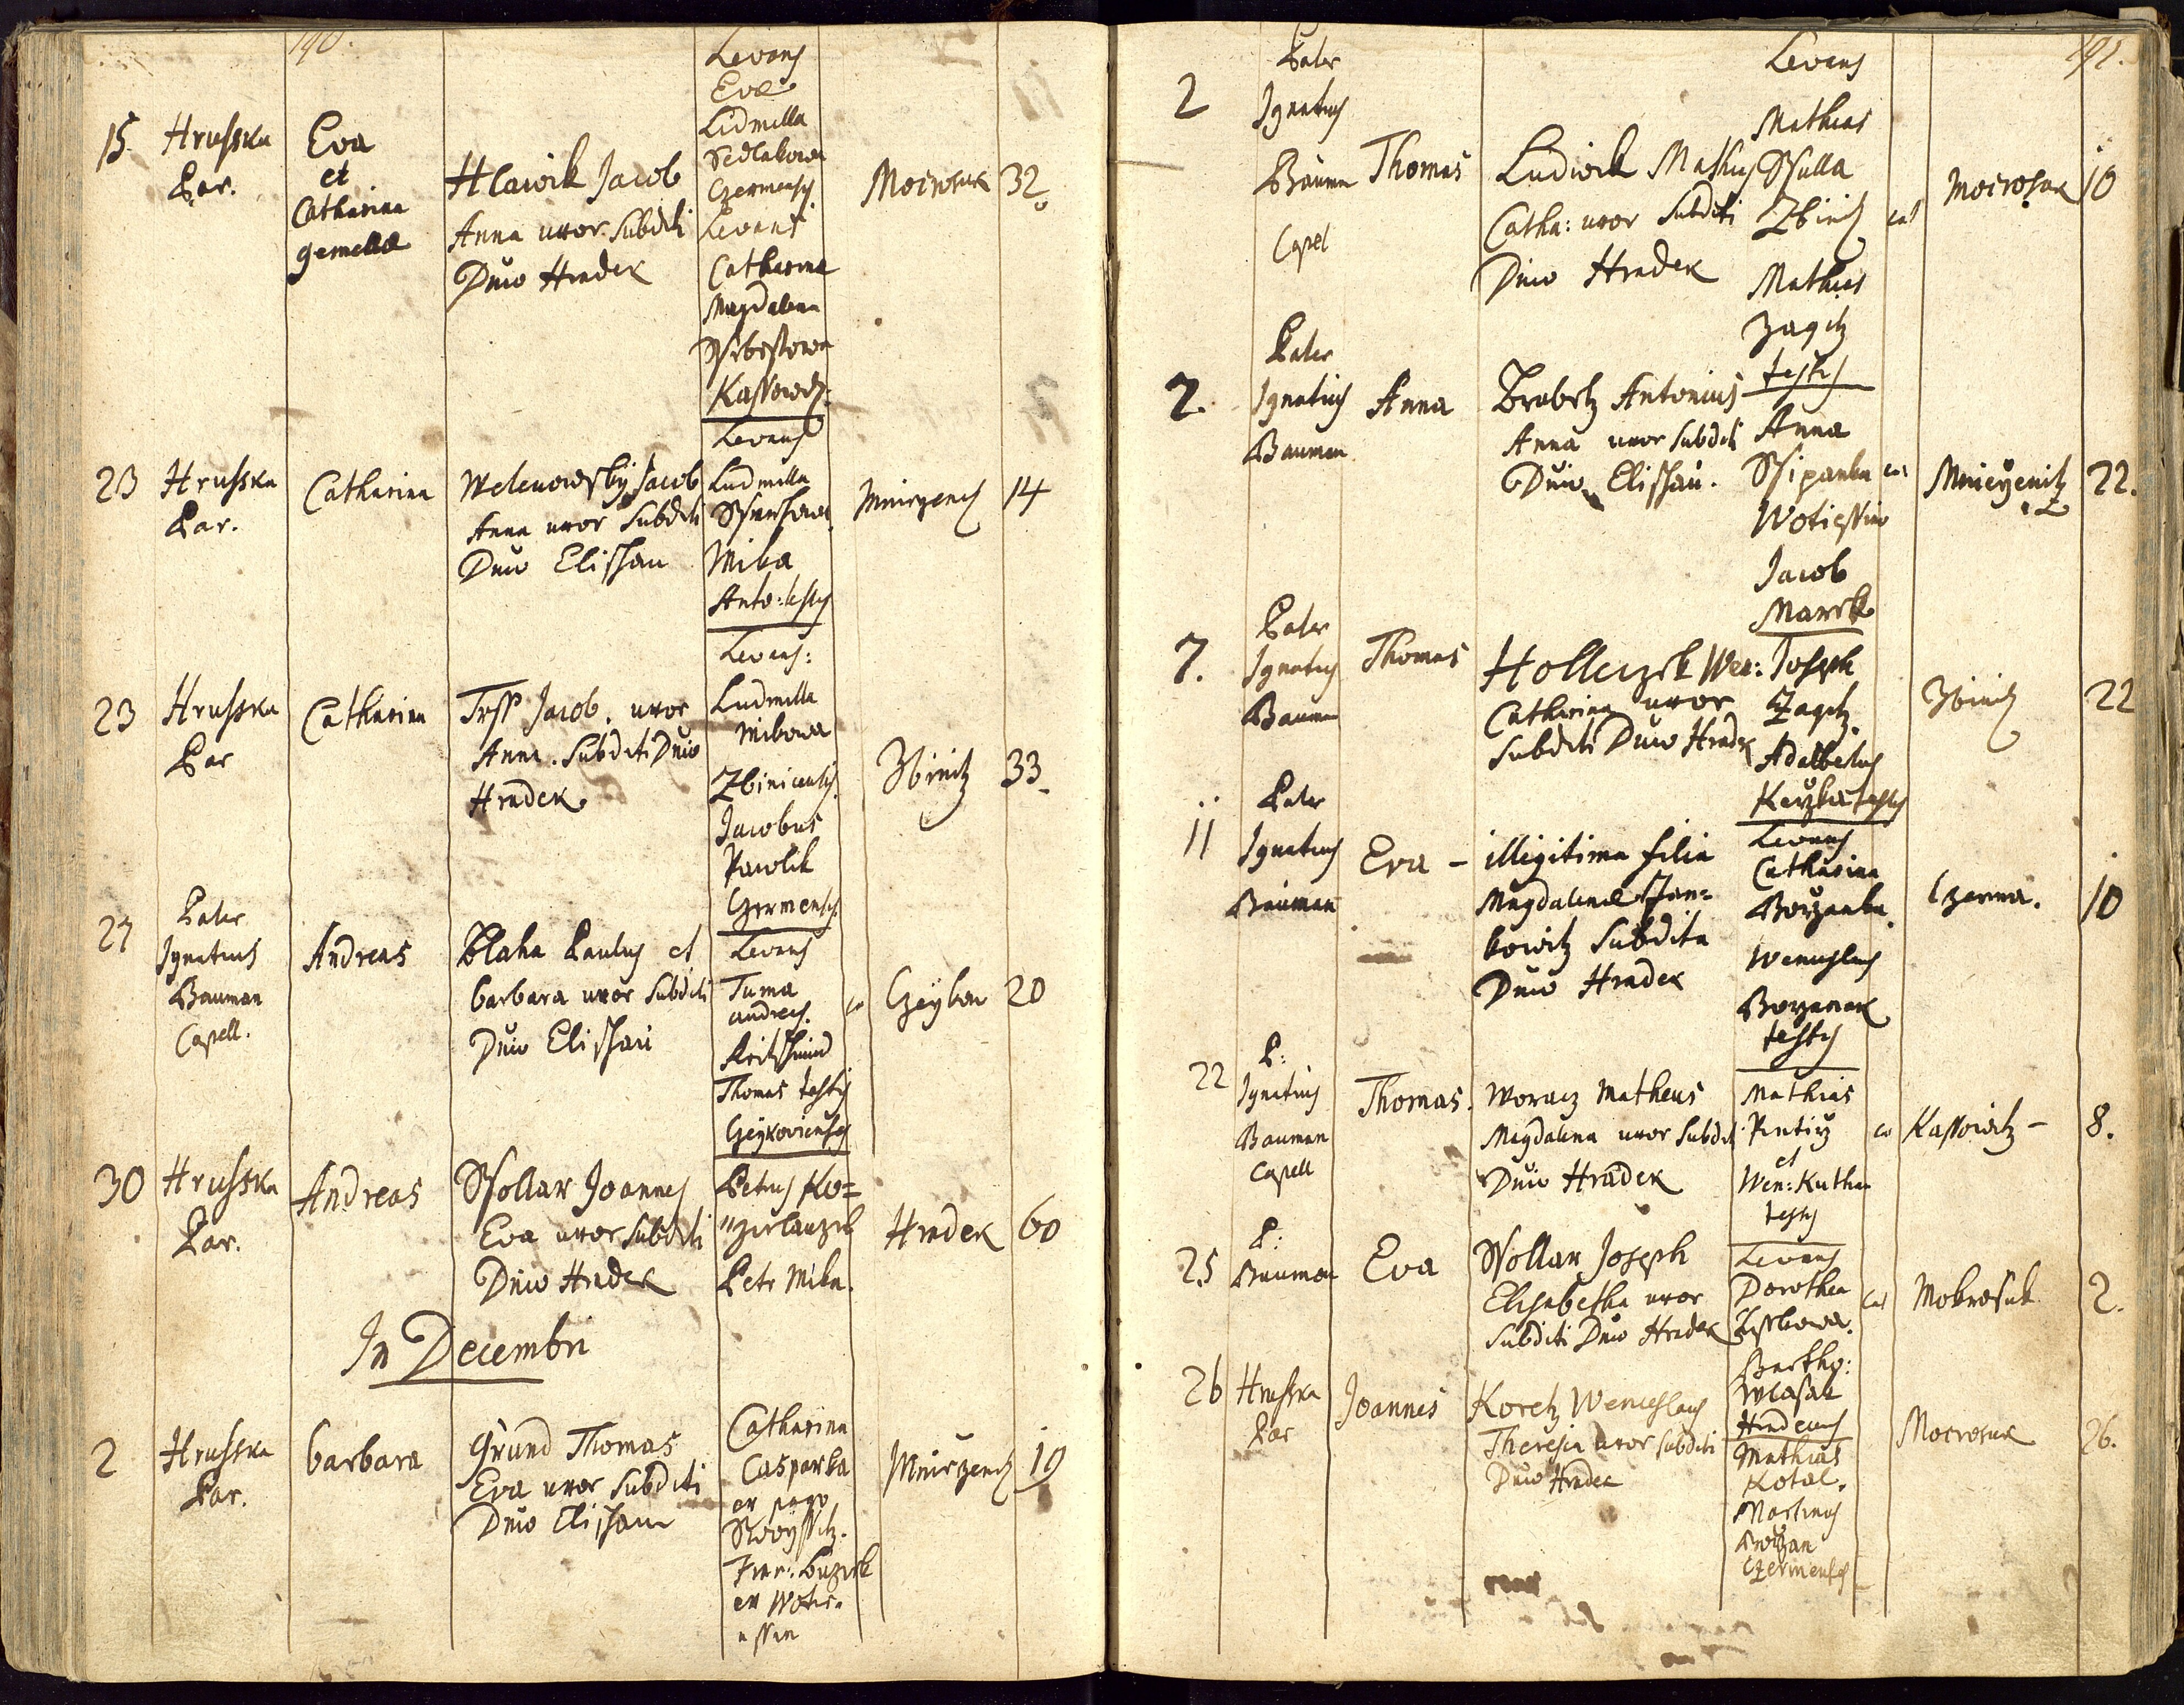 190.
15. Hrusska Par.
Eva
et
Catharina
gemellæ
Hlawik Jacob
Anna uxor Subditi
Duio Hradek
Levans
Evæ
Lidmilla
Sedlakowa
Czermensis
Levans
Catharina
Magdalena
Kassowitz
Mocrosuk 32
23 Hrusska
Par.
Catharina
Welenowsky Jacob
Anna uxor Subditi
Duio Elischau
Levans
Ludmilla
Mika
Anto: testis
14
23 Hrusska
Par
Catharina
Jacob. uxor
Anna. Subditi Duio
Hradek
Levans:
Ludmilla
Mikowa
Zbinicensis
Jacobus
Pawlik
Czermensis
Zbinitz 33
27
Pater
Ignatius
Bauman
Capell.
Andreas
Blaha Paulus et
barbara uxor Subditi
Duio Elischau
Levans
Tuma
andreas
Thomas testis
Czeykoviensis
Czeykow 20
30 Hrusska
Par.
Andreas
Ssollar Joannes
Eva uxor Subditi
Duio Hradek
Petrus Ko=
Petr Mika.
Hradek 60
In Decembri
2 Hrusska
Par.
barbara
Grund Thomas
Eva uxor Subditi
Duio Elischau
Catharina
Casparka
ex pago
ex Woti=
ssin
19
191.
2
Pater
Ignatius
Bauman
Capel
Thomas
Ludwik Mathias
Catha: uxor Subditi
Duio Hradek
Levans
Mathias
Ssulla
Zbinitz
Mathias
Zagitz
testis
Mocrosuk 10
2.
Pater
Ignatius
Bauman
Anna
Brabetz Antonius
Anna uxor Subditi
Duio Elischau.
Anna
Ssipanka
Wotiessin
Jacob
Marek
22.
7.
Pater
Ignatius
Bauman
Thomas
Holleczek Wen:
Catharina uxor
Subditi Duio Hradek
Joseph
Zagitz
Adalbertus
testis
Zbinitz 22
11
Pater
Ignatius
Bauman
Eva -
illegitima filia
Magdalenæ Jan=
kowitz Subdita
Duio Hradek
Levans
Catharina
Borzanka
Wenceslaus
Borzanek
testis
Czerma. 10
22
P:
Ignatius
Bauman
Capell
Thomas.
Woracz Matheus
Magdalena uxor Subditi
Duio Hradek
Mathias
et
Wen: Kutha
testis
Kassowitz - 8.
25
P:
Bauman
Eva
Ssollar Joseph
Elisabetha uxor
Subditi Duio Hradek
Levans
Dorothea
Mokrosuk 2.
26 Hrusska
Par
Joannes
Koretz Wenceslaus
Theresia uxor Subditi
Duio Hradek
Bartho:
Wlasak
Mathias
Kotal.
Martinus
Borzan
Czermensis
Mocrosuk 26.